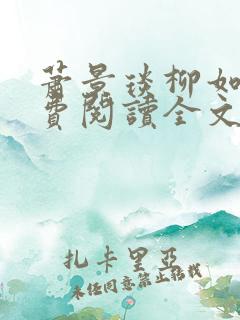 萧景琰柳如
费阅读全文
扎卡里亚
未经同意禁止转载